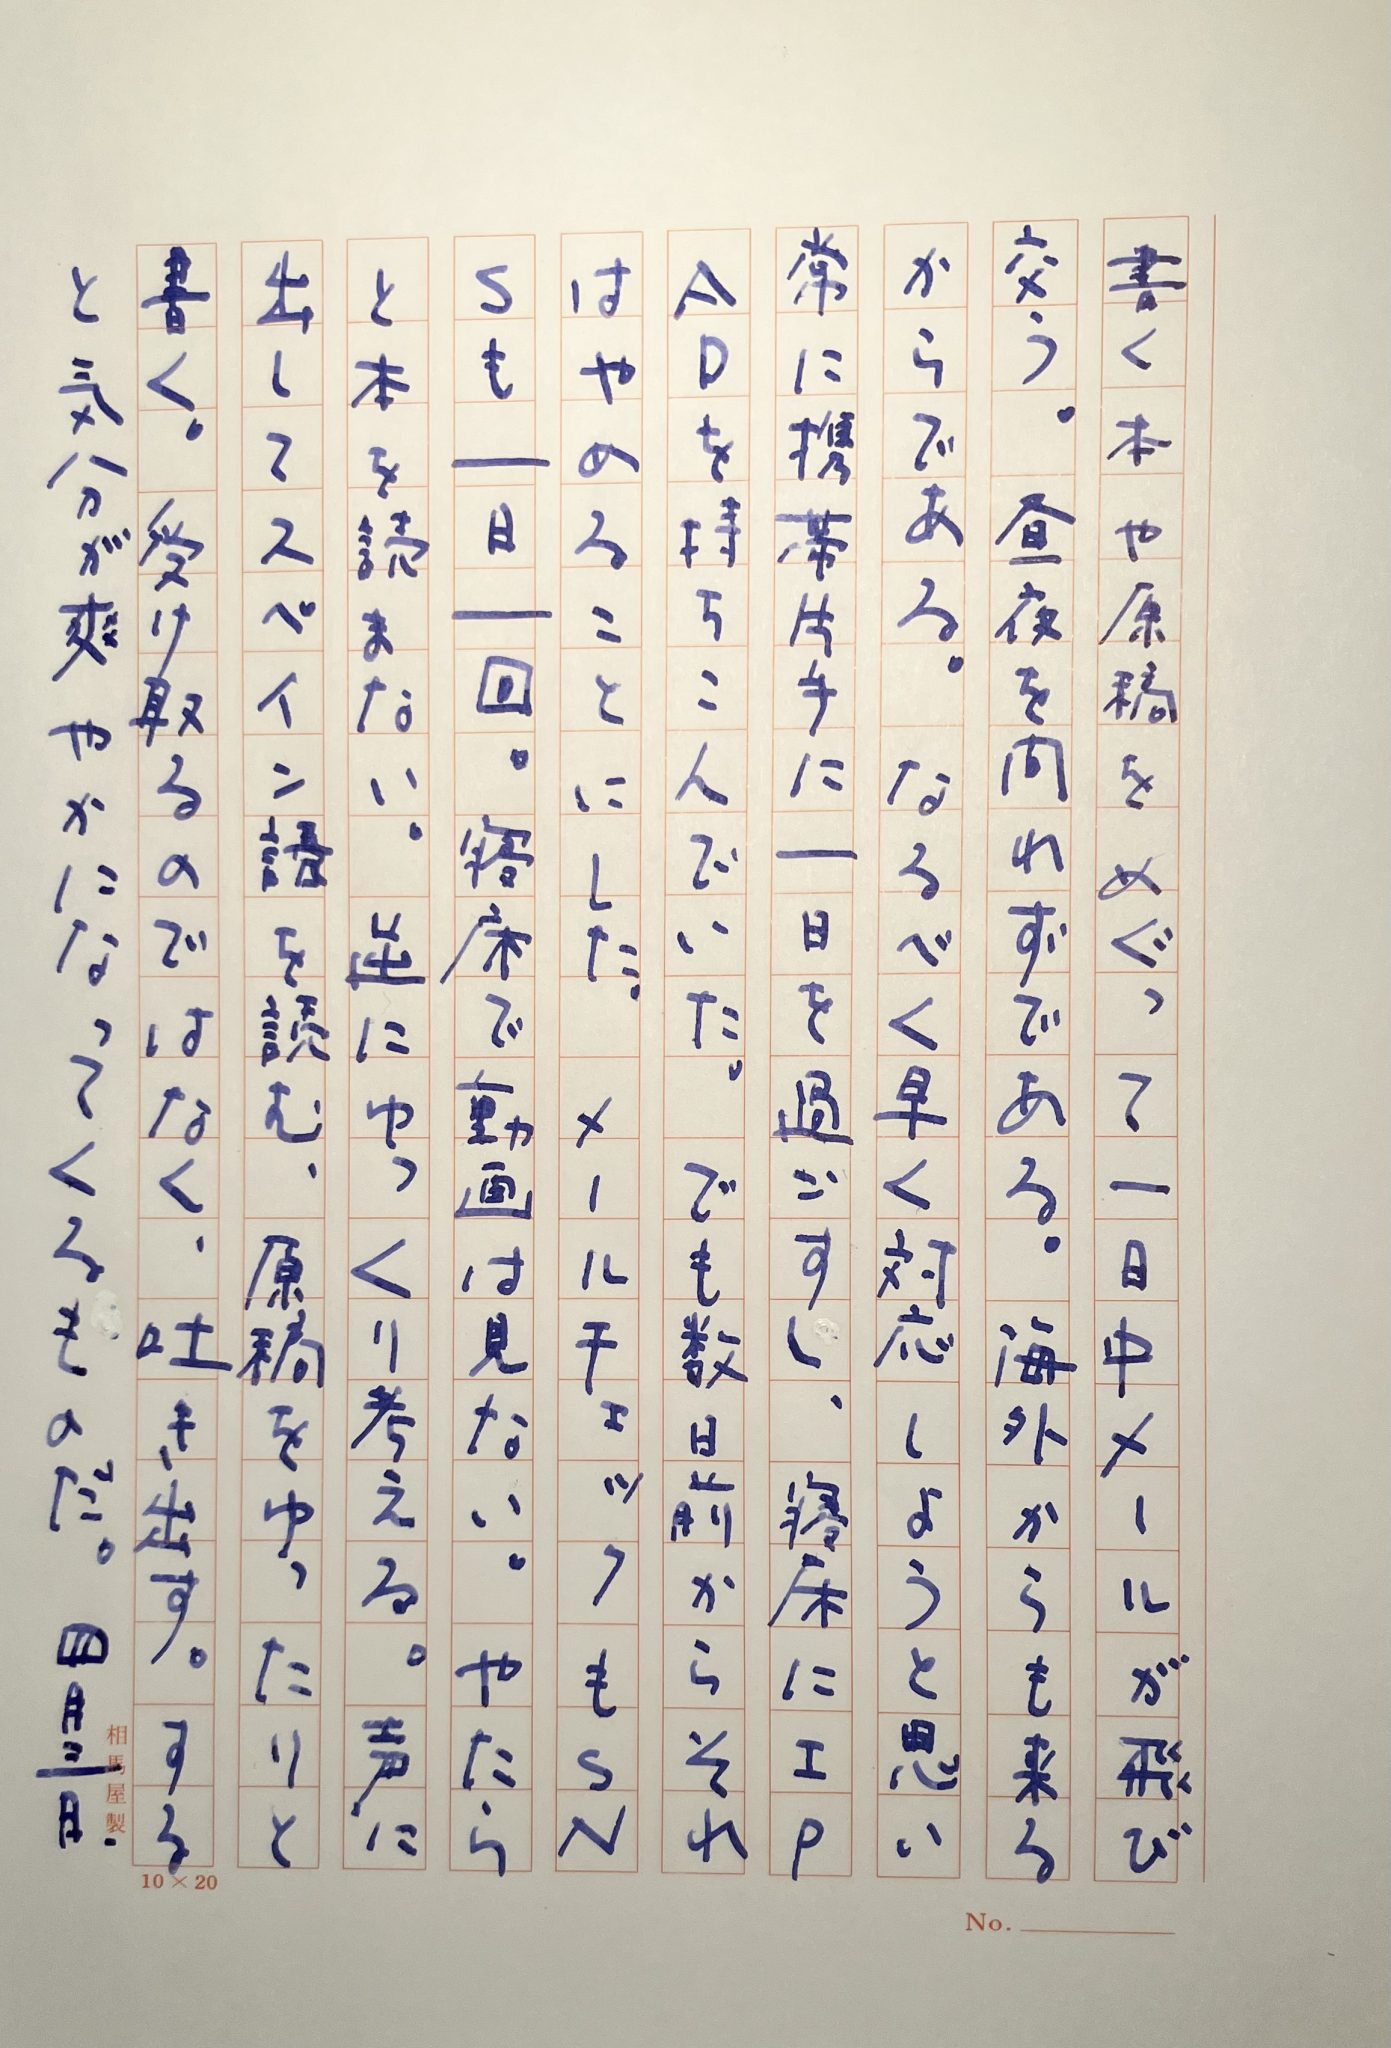 書く本や原稿をめぐって一日中メールが飛び
交う。昼夜を問わずである。海外からも来る
からである。なるべく早く対応しようと思い
常に携帯片手に一日を過ごすし、寝床にIP
ADを持ちこんでいた。でも数日前からそれ
はやめることにした。メールチェックもSN
Sも一日一回。寝床で動画は見ない。やたら
と本を読まない。逆にゆっくり考える。声に
出してスペイン語を読む、原稿をゆったりと
書く。受け取るのではなく、吐き出す。する
と気分が爽やかになってくるものだ。四月三日.
相馬屋製
10×20
No.